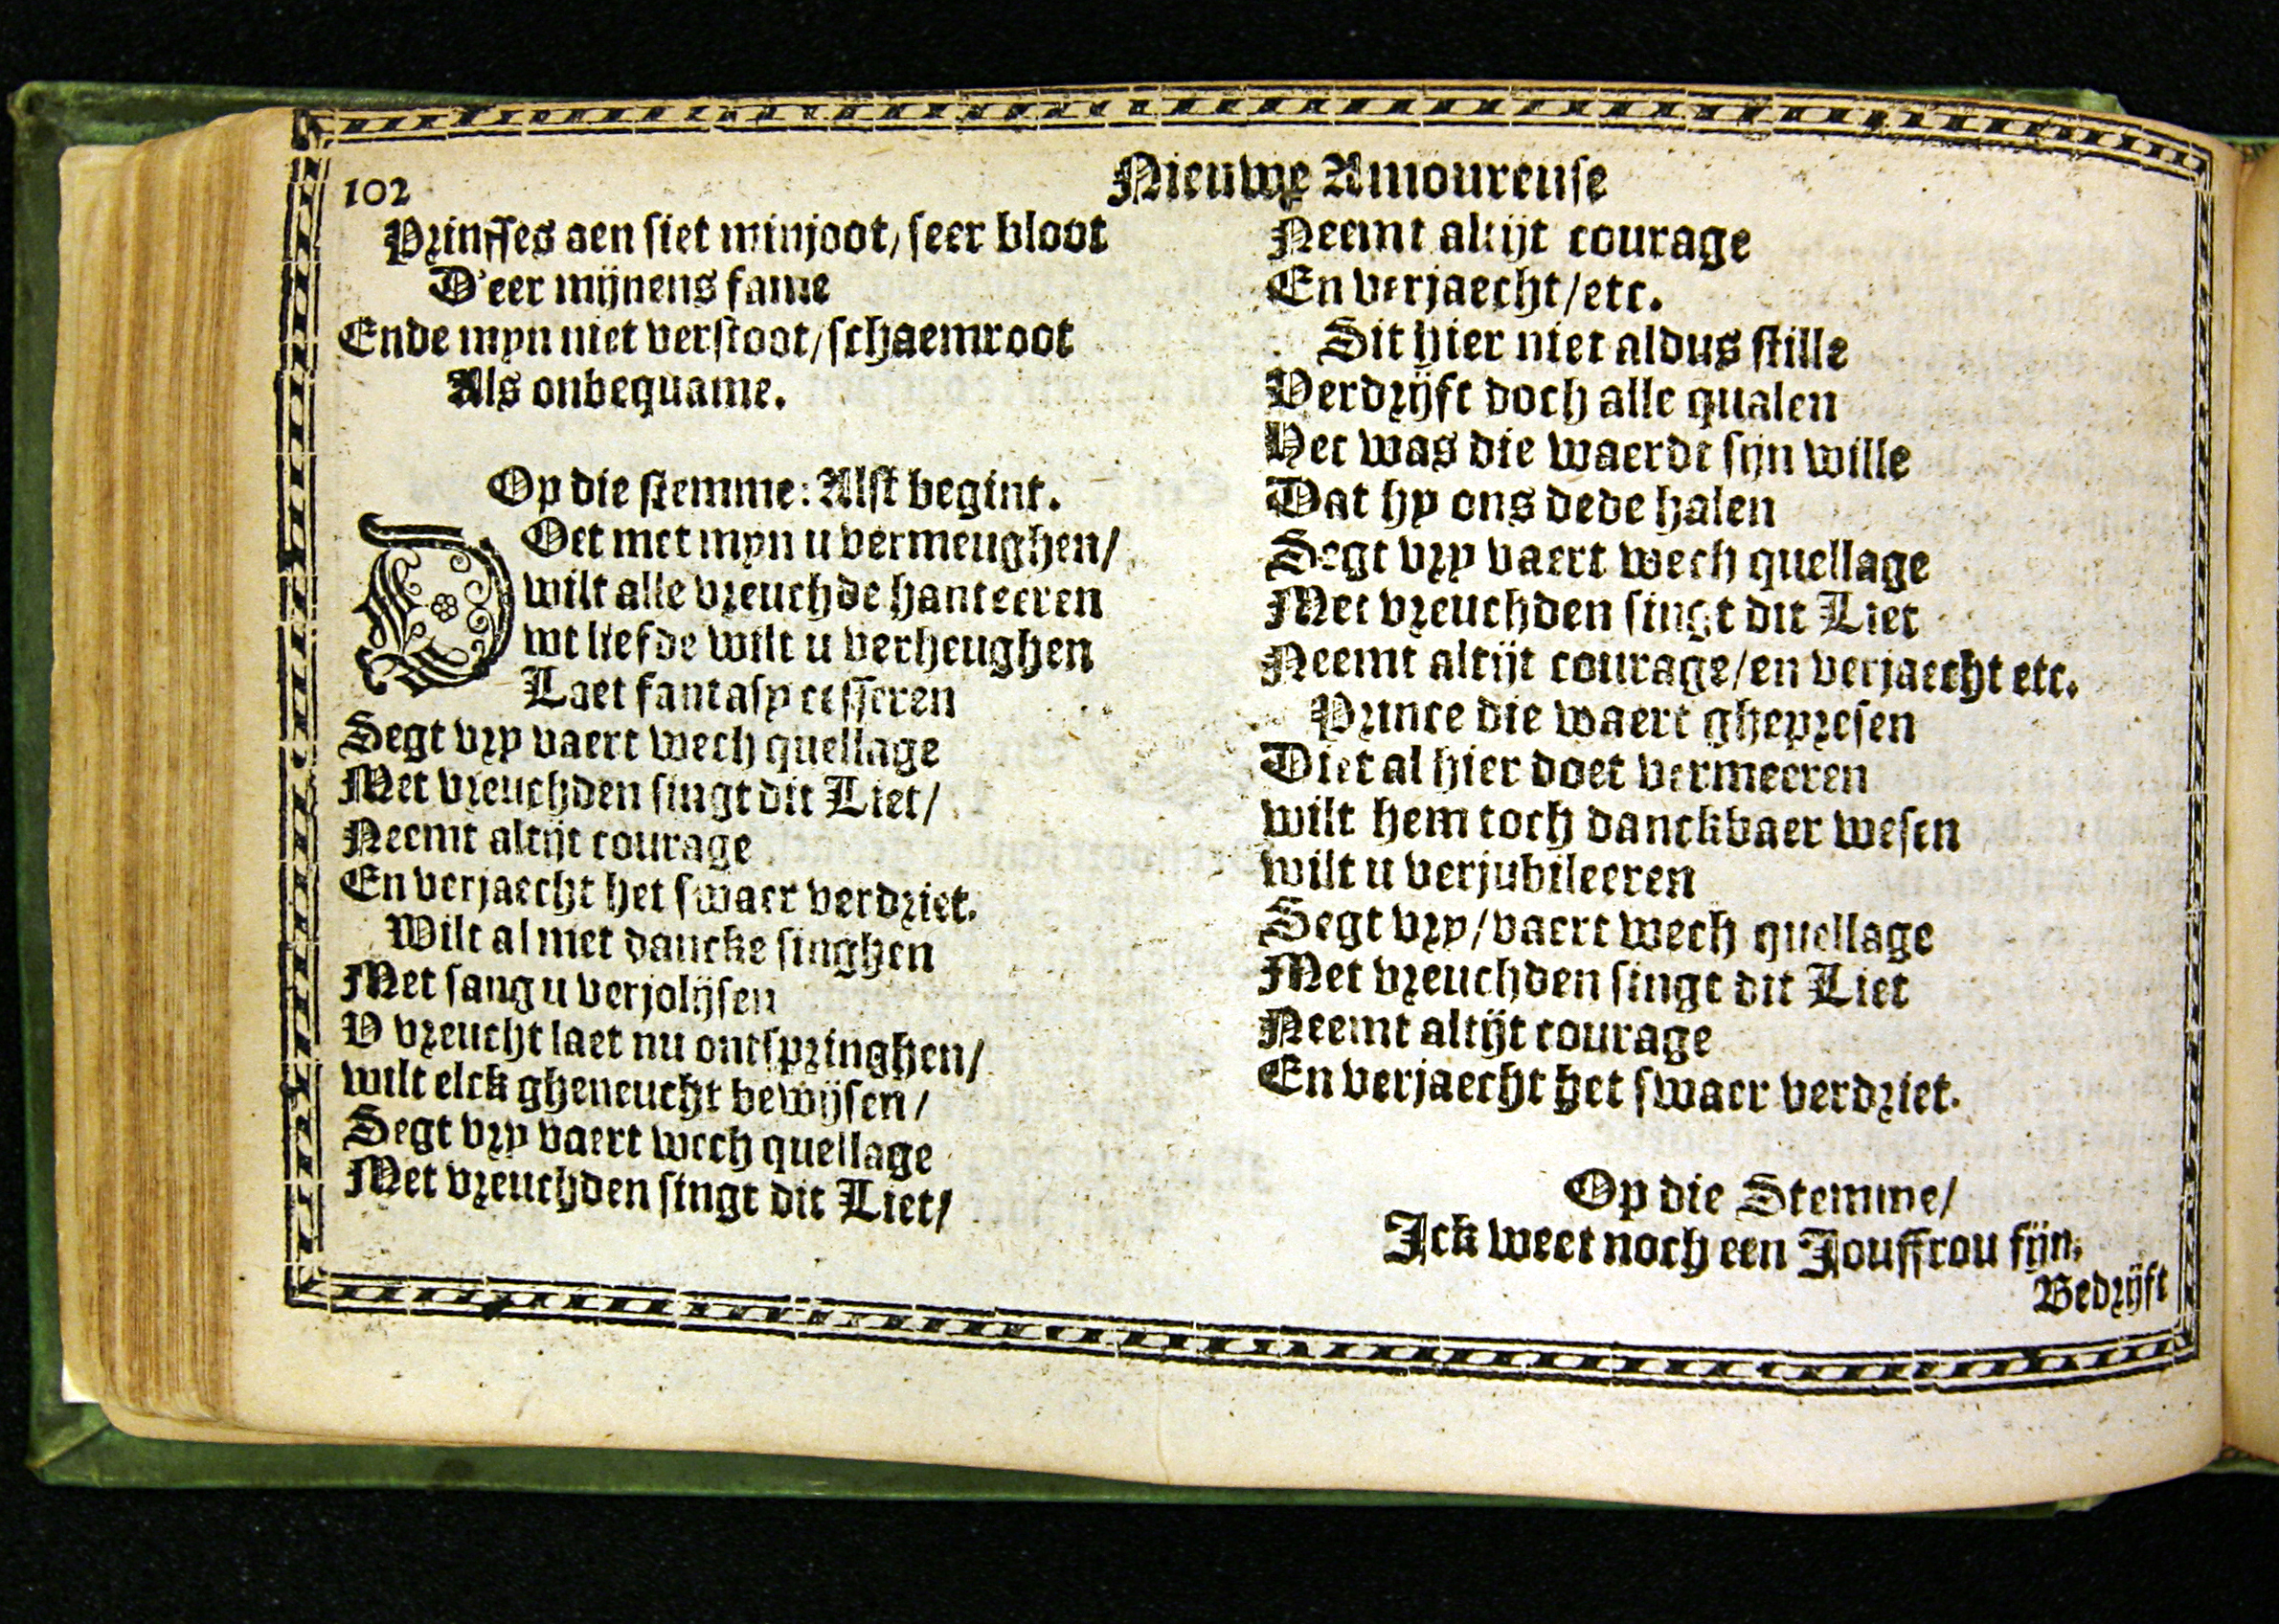 102
Nieuwe Amoureuse
Prinsses aen siet minjoot, seer bloot
D'eer mijnens fame
Ende myn niet verstoot/schaemroot
Als onbequame.
Op die stemme: Alst begint.
DOet met myn u vermeughen/
wilt alle vreuchde hanteeren
wt liefde wilt u verheughen
Laet fantasy cesseren
Segt vry vaert wech quellage
Met vreuchden singt dit Liet/
Neemt altijt courage
En verjaecht het swaer verdriet.
Wilt al met dancke singhen
Met sang u verjolijsen
V vreucht laet nu ontspringhen/
wilt elck gheneucht bewijsen/
Segt vry vaert wech quellage
Met vreuchden singt dit Liet/
Neemt altijt courage
En verjaecht/etc.
Sit hier niet aldus stille
Verdrijft doch alle qualen
Het was die waerdt sijn wille
Dat hy ons dede halen
Segt vry vaert wech quellage
Met vreuchden singt dit Liet
Neemt altijt courage/en verjaecht etc.
Prince die waert ghepresen
Diet al hier doet vermeeren
wilt hem toch danckbaer wesen
wilt u verjubileeren
Segt vry/vaert wech quellage
Met vreuchden singt dit Liet
Neemt altijt courage
En verjaecht het swaer verdriet.
Op die Stemme/
Ick weet noch een Jouffrou fijn.
Bedrijft